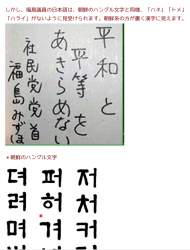 しかし、福島議員の日本語は、朝鮮のハングル文字と同様、「ハネ」「トメ」
「ハライ」がないように見受けられます。朝鮮系の方が書く漢字に見えます。
平和と
平等を
あきらめない
社民党党首
福島みずほ
*朝鮮のハングル文字
뎌 펴 저
려 허 처
며 겨 커